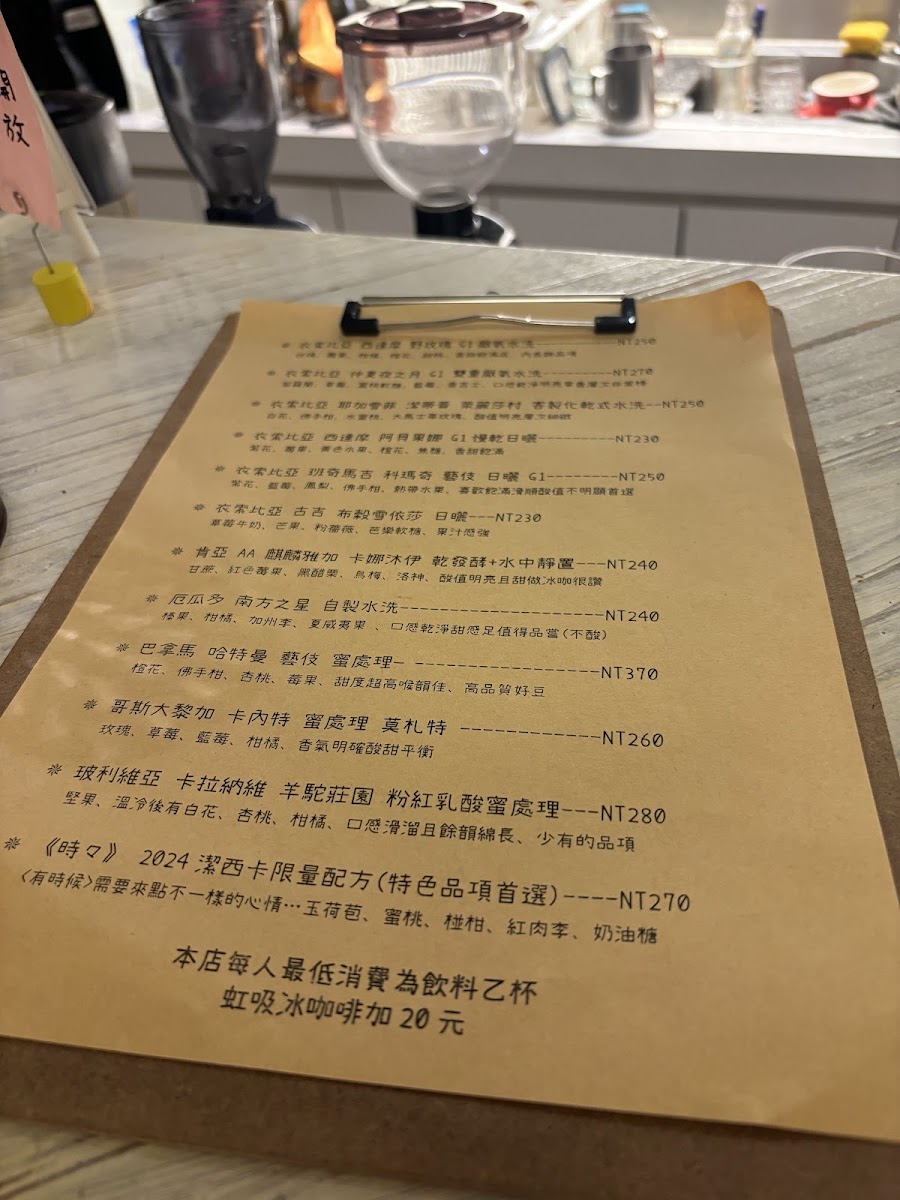 開放
✲ 衣索比亞 西達摩 野玫瑰 G1 厭氧水洗-----------NT250
✲ 衣索比亞 仲夏夜之月 G1 雙重厭氧水洗----------NT270
✲ 衣索比亞 耶加雪菲 潔蒂普 萊麗莎村 客製化乾式水洗--NT250
白花、佛手柑、水蜜桃、大馬士革玫瑰、酸值明亮層次細緻
✲ 衣索比亞 西達摩 阿貝果娜 G1 慢乾日曬----------NT230
紫花、莓果、黃色水果、橙花、焦糖、香甜飽滿
✲ 衣索比亞 班奇馬吉 科瑪奇 藝伎 日曬 G1--------NT250
紫花、藍莓、鳳梨、佛手柑、熱帶水果、喜歡飽滿滑順酸值不明顯首選
✲ 衣索比亞 古吉 布穀雪依莎 日曬---NT230
草莓牛奶、芒果、粉薔薇、芒樂軟糖、果汁感強
✲ 肯亞 AA 麒麟雅加 卡娜沐伊 乾發酵+水中靜置---NT240
甘蔗、紅色莓果、黑醋栗、烏梅、洛神、酸值明亮且甜做冰咖很讚
✲ 厄瓜多 南方之星 自製水洗--------------------NT240
榛果、柑橘、加州李、夏威夷果 、口感乾淨甜感足值得品嘗(不酸)
✲ 巴拿馬 哈特曼 藝伎 蜜處理- ------------------NT370
橙花、佛手柑、杏桃、莓果、甜度超高喉韻佳、高品質好豆
✲ 哥斯大黎加 卡內特 蜜處理 莫札特 ------------NT260
玫瑰、草莓、藍莓、柑橘、香氣明確酸甜平衡
✲ 玻利維亞 卡拉納維 羊駝莊園 粉紅乳酸蜜處理---NT280
堅果、溫冷後有白花、杏桃、柑橘、口感滑溜且餘韻綿長、少有的品項
✲ 《時々》 2024 潔西卡限量配方(特色品項首選)----NT270
<有時候>需要來點不一樣的心情…玉荷苞、蜜桃、椪柑、紅肉李、奶油糖
本店每人最低消費為飲料乙杯
虹吸冰咖啡加 20 元